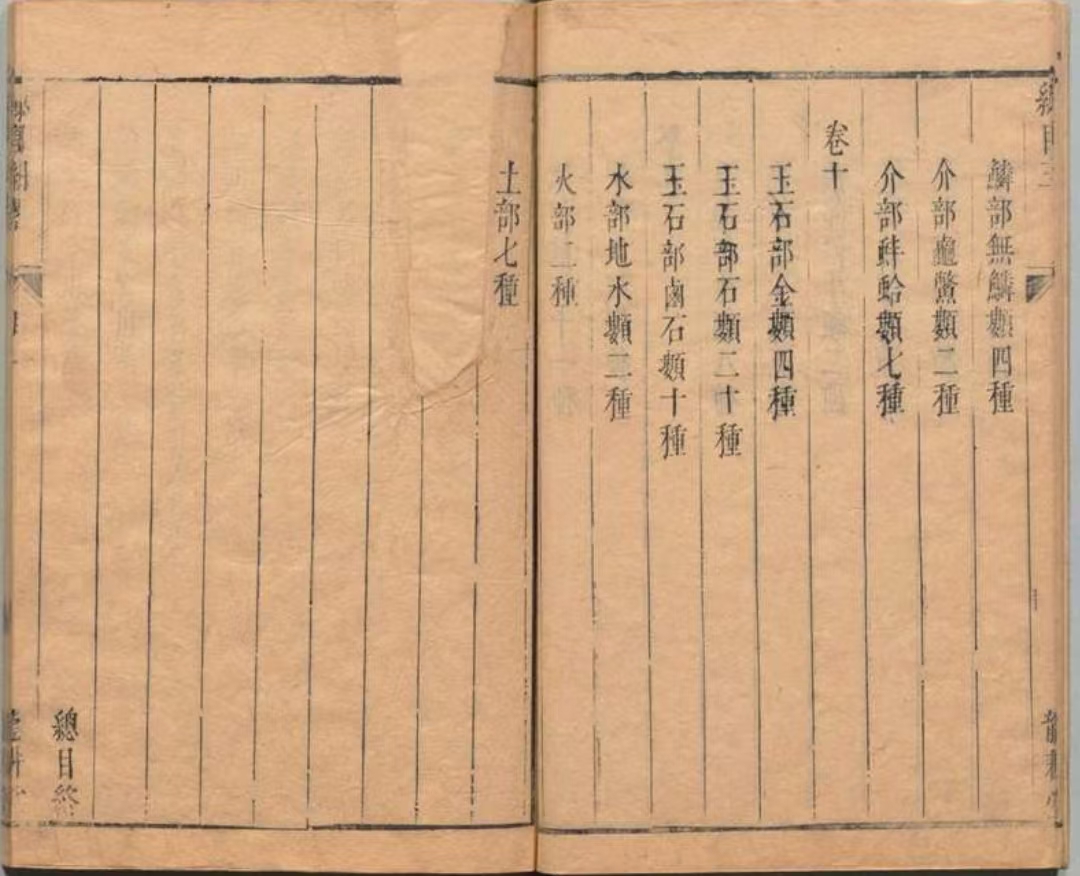 鱗部無鱗類四種
介部龜鱉類二種
介部蚌蛤類七種
卷十
玉石部金類四種
玉石部石類二十種
玉石部鹵石類十種
水部地水類二種
火部二種
土部七種
總目終